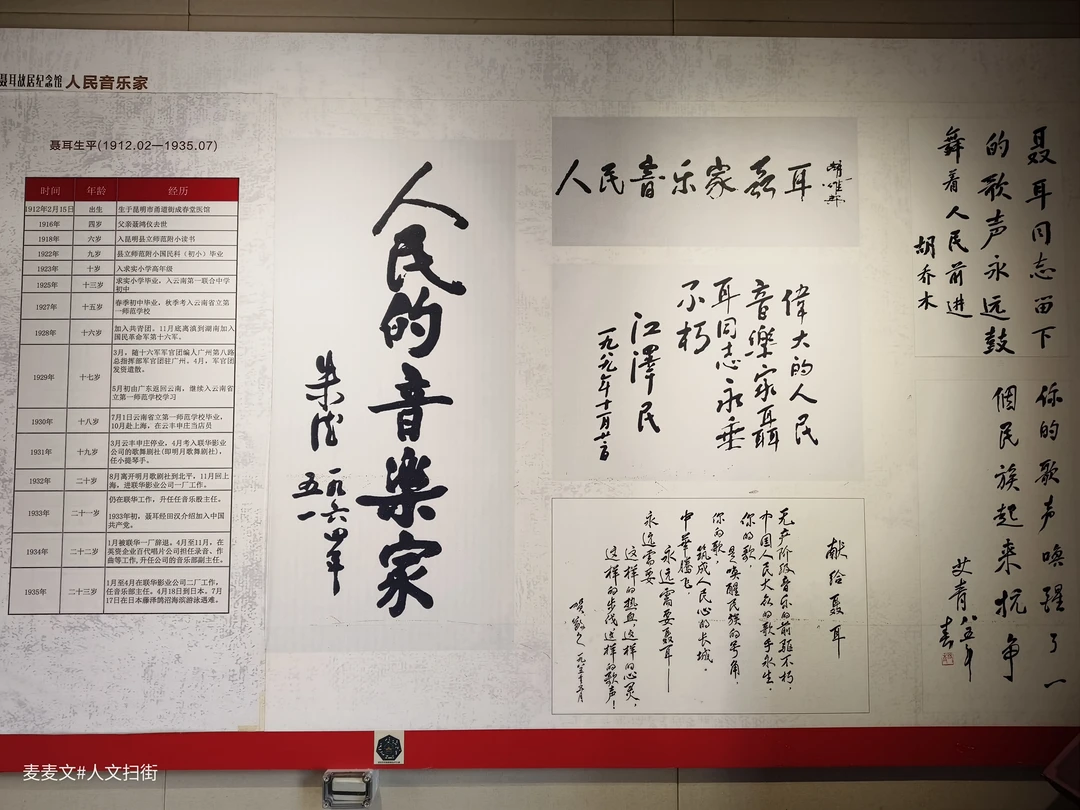 聂耳故居纪念馆 人民音乐家
聂耳生平(1912.02—1935.07)
时间 年龄 经历
1912年2月15日 出生 生于昆明市甬道街成春堂医馆
1916年 四岁 父亲聂鸿仪去世
1918年 六岁 入昆明县立师范附小读书
1922年 九岁 县立师范附小国民科（初小）毕业
1923年 十岁 入求实小学高年级
1925年 十三岁 求实小学毕业，入云南第一联合中学
初中
1927年 十五岁 春季初中毕业，秋季考入云南省立第
一师范学校
1928年 十六岁 加入共青团，11月底离滇到湖南加入
国民革命军第十六军。
1929年 十七岁 3月，随十六军军官团编入广州第八路
总指挥部军官团驻广州。4月，军官团
发资遣散。
5月初由广东返回云南，继续入云南省
立第一师范学校学习
1930年 十八岁 7月1日云南省立第一师范学校毕业，
10月赴上海，在云丰申庄当店员
1931年 十九岁 3月云丰申庄停业，4月考入联华影业
公司的歌舞剧社(即明月歌舞剧社)，
任小提琴手。
1932年 二十岁 8月离开明月歌剧社到北平，11月回上
海，进联华影业公司一厂工作。
1933年 二十一岁 仍在联华工作，升任任音乐股主任。
1933年初，聂耳经田汉介绍加入中国
共产党。
1934年 二十二岁 1月被联华一厂辞退。4月至11月，在
英资企业百代唱片公司担任录音、作
曲等工作,升任公司的音乐部副主任。
1935年 二十三岁 1月至4月在联华影业公司二厂工作，
任音乐部主任。4月18日到日本。7月
17日在日本藤泽鹄沼海滨游泳遇难。
人民的音樂家
朱德 一九六四年
五一
人民音乐家聂耳
偉大的人民
音樂家聶
耳同志永垂
不朽
江澤民
一九八九年十一月廿二日
献给聂耳
无产阶级音乐的前驱不朽，
中国人民大众的歌手永生，
你的歌，
是唤醒民族的号角，
你的歌，
筑成人民心的长城。
中華腾飞，
永远需要聂耳——
永远需要
这样的热血，这样的心灵，
这样的步伐，这样的歌声！
聂耳同志留下
的歌声永远鼓
舞着人民前进
胡乔木
你的歌声唤醒了一
個民族起来抗争
艾青 八五年
春
麦麦文#人文扫街